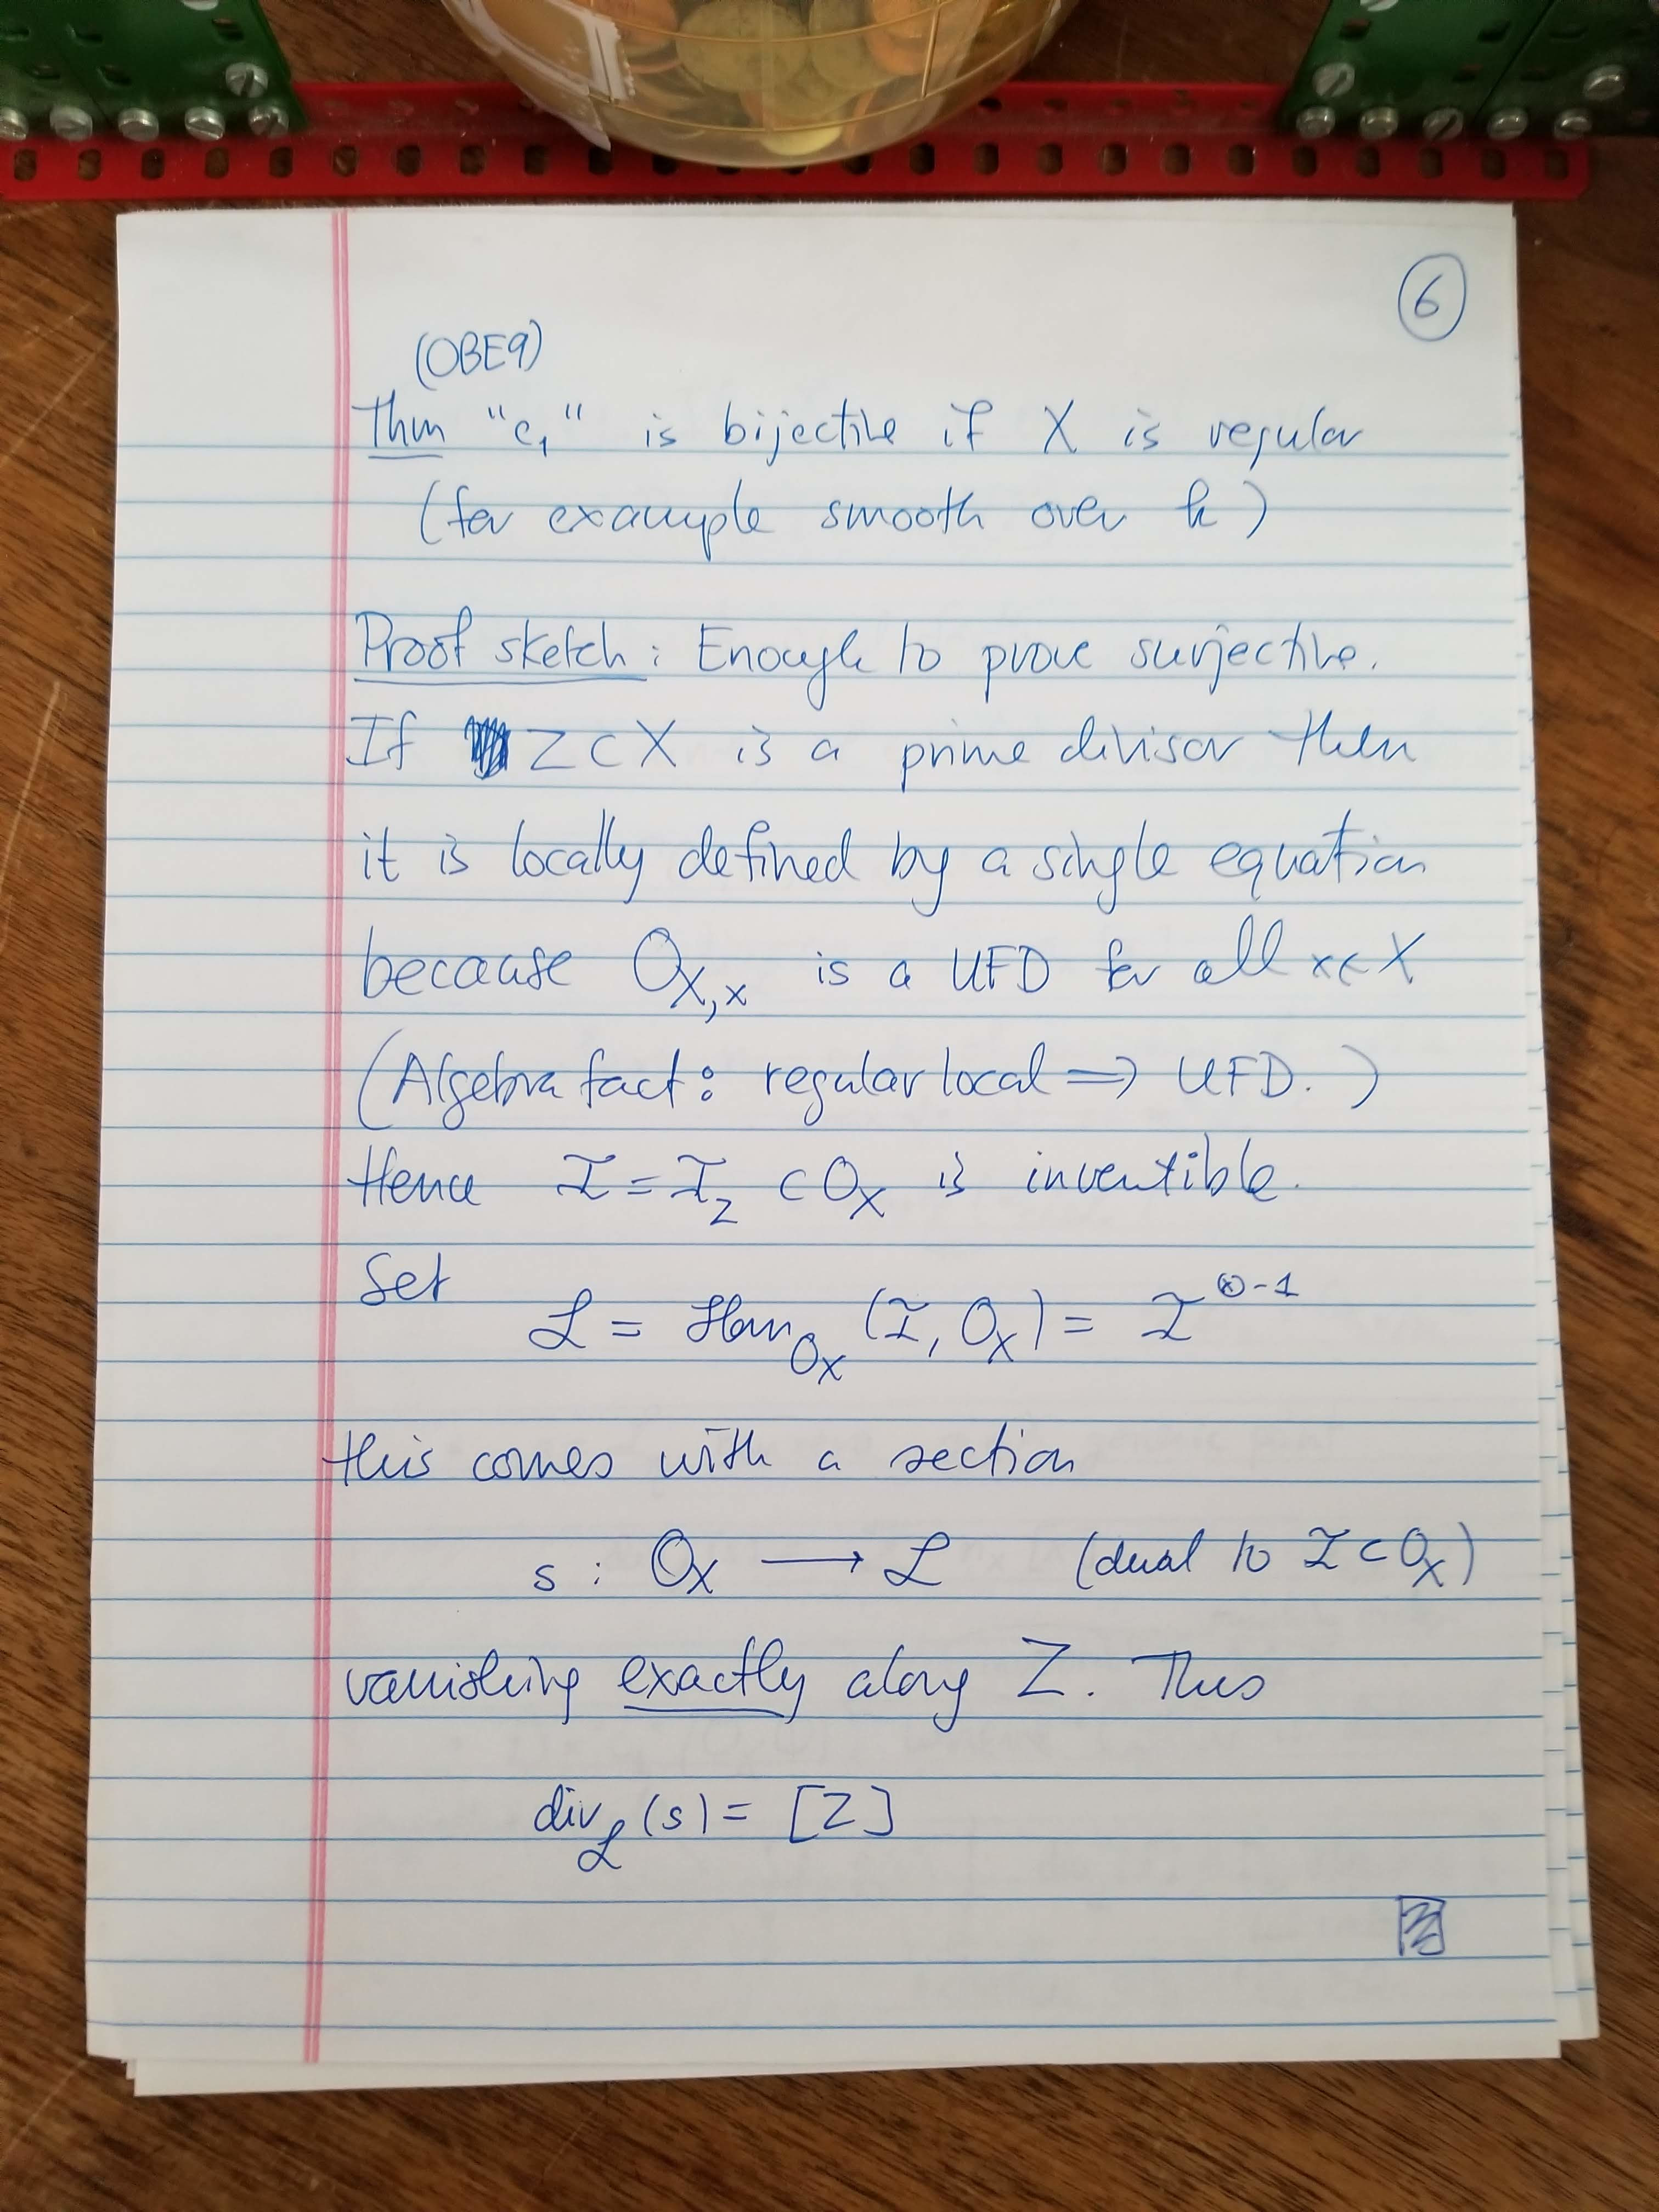 6
(0BE9)
Thm "c₁" is bijective if X is regular
(for example smooth over k)
Proof sketch: Enough to prove surjective.
If Z ⊂ X is a prime divisor then
it is locally defined by a single equation
because O_{X,x} is a UFD for all x ∈ X
(Algebra fact: regular local ⇒ UFD.)
Hence I = I_Z ⊂ O_X is invertible.
Set
ℒ = Hom_{O_X} (I, O_X) = I^{⊗-1}
this comes with a section
s : O_X ⟶ ℒ (dual to I ⊂ O_X)
vanishing exactly along Z. Thus
div_ℒ(s) = [Z]